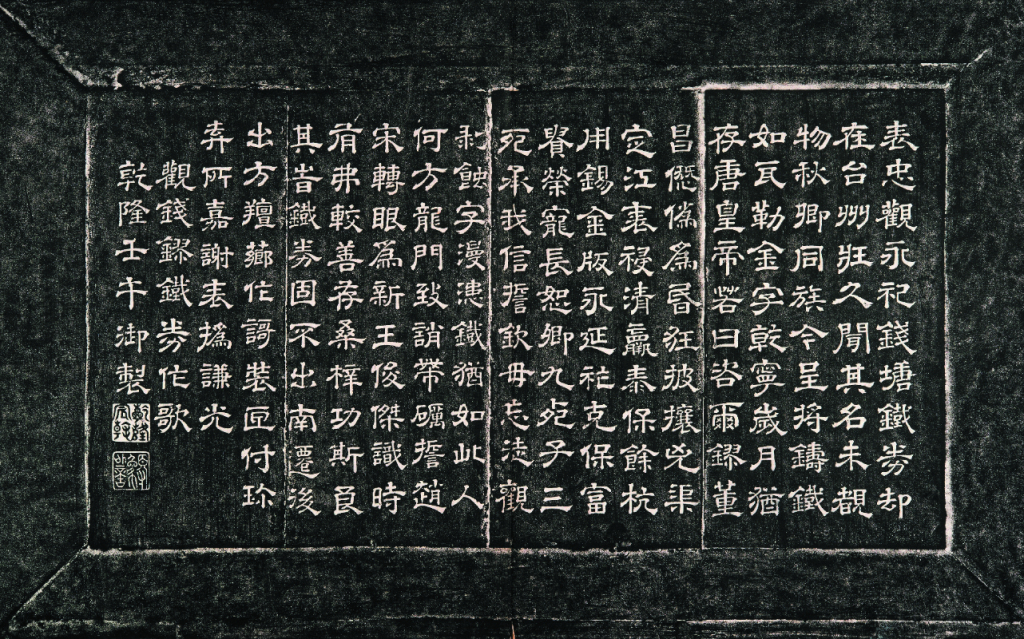 表忠觀永祀錢塘鐵券却
在台州久聞其名未覩
物秋卿同族今呈將鑄鐵
如瓦勒金字乾寧歲月猶
存唐皇帝若曰咨爾鏐董
昌僭偽為昏狂披攘兇渠
定江表祲清泰保餘杭
用錫金版永延祚克保富
貴榮寵長恕卿九死子三
死承我信誓欽毋忘徒觀
剝蝕字漫漶鐵猶如此人
何方龍門致誚帶礪誓趙
宋轉眼為新王俊傑識時
有弗較善存桑梓功斯良
其昔鐵券固不出南遷後
出方羶薌作謌裝匣付珍
弆所嘉謝表撝謙光
觀錢鏐鐵券作歌
乾隆壬午御製